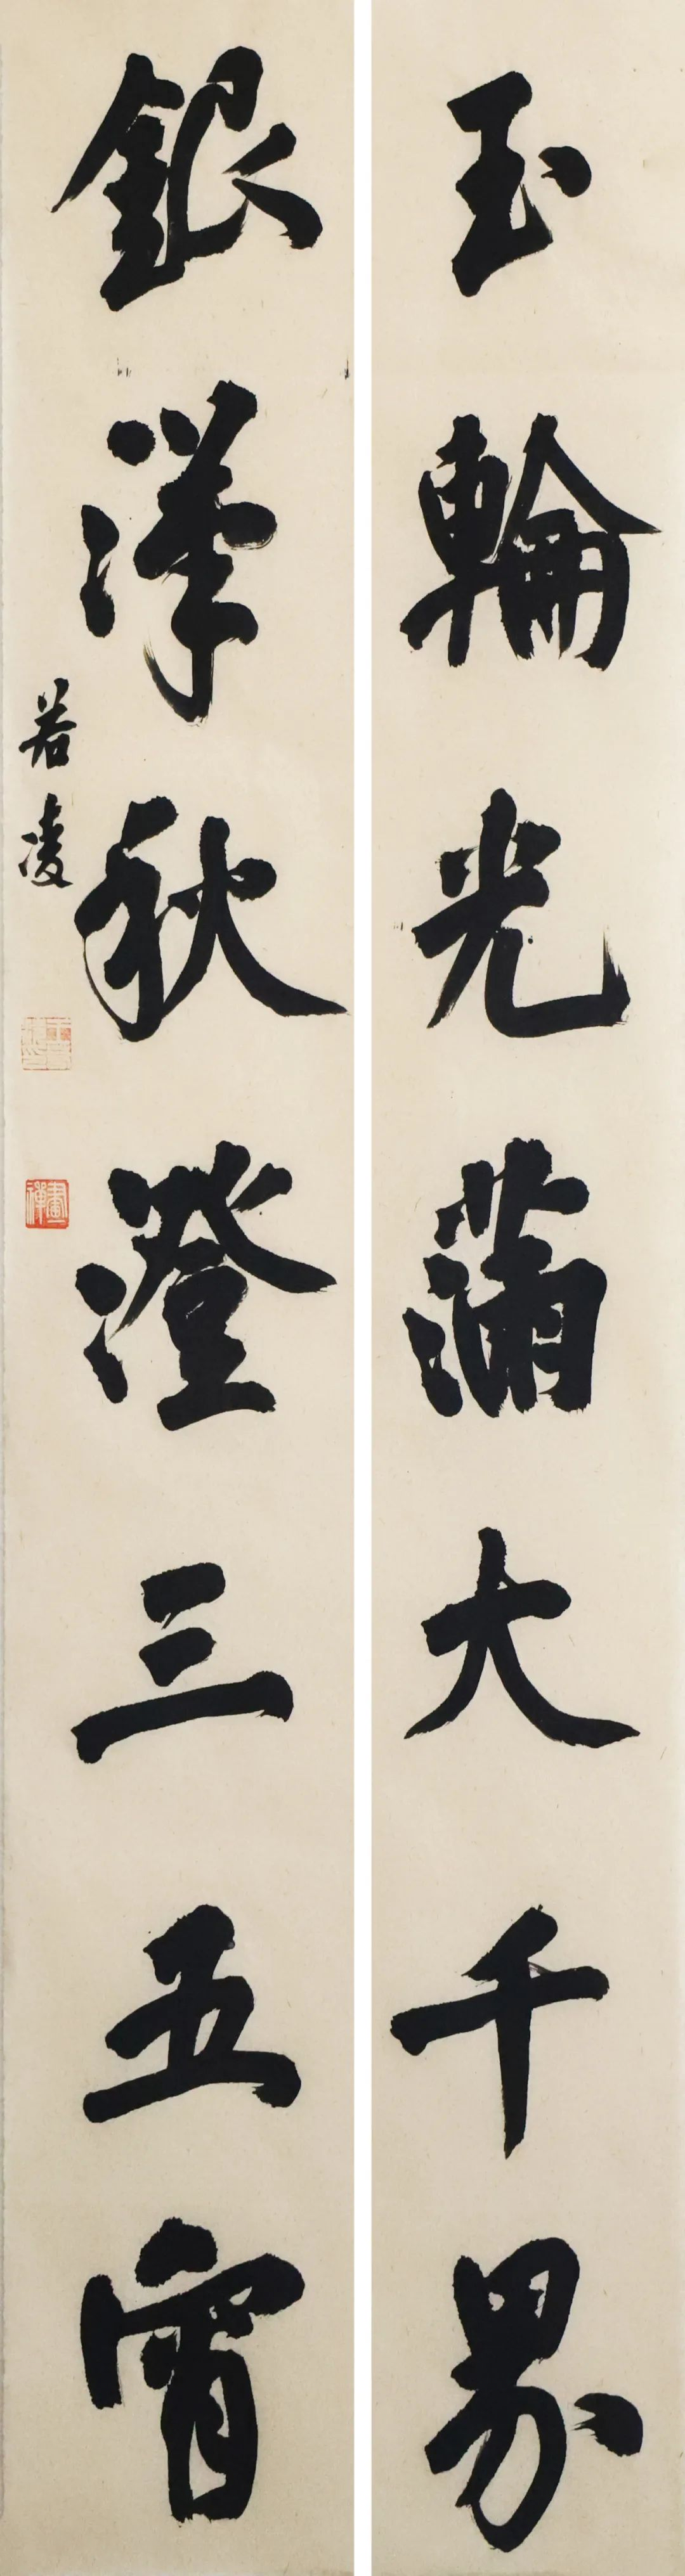 玉輪光滿大千界
銀漢秋澄三五宵
若凌
畫禪